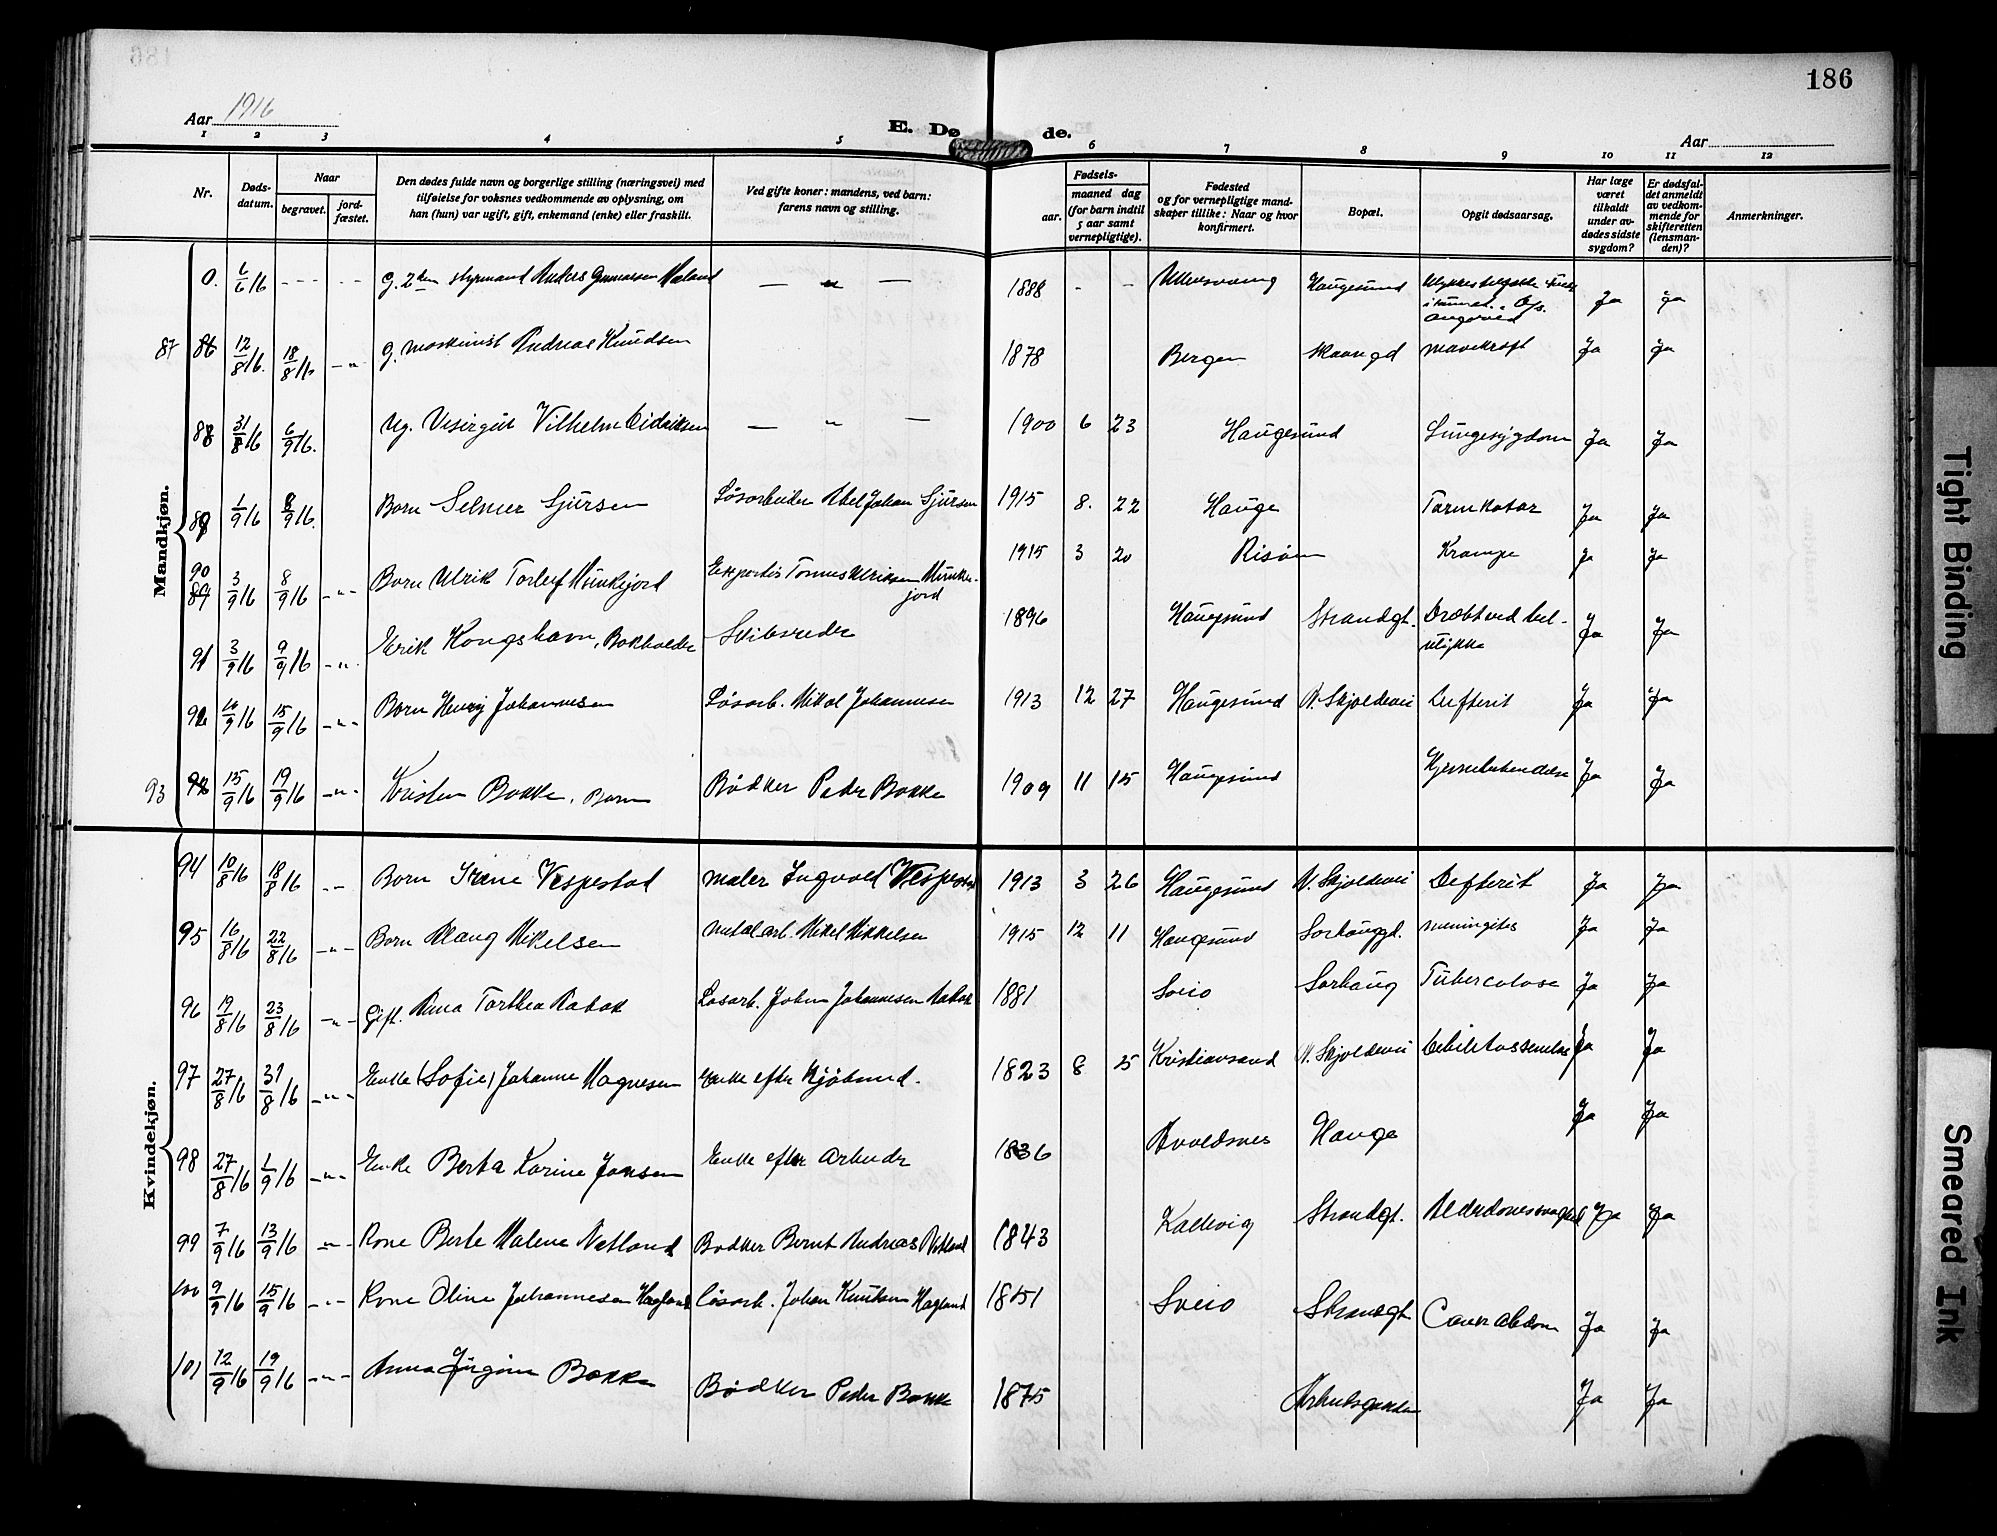 186
Aar 1916
E. Dø de.
Aar
1 2 3 4 5 6 7 8 9 10 11 12
Nr.
Døds-
datum.
Naar
begravet.
jord-
fæstet.
Den dødes fulde navn og borgerlige stilling (næringsvei) med
tilføielse for voksnes vedkommende av oplysning, om
han (hun) var ugift, gift, enkemand (enke) eller fraskilt.
Ved gifte koner: mandens, ved barn:
farens navn og stilling.
Fødsels-
aar.
maaned dag
(for barn indtil
5 aar samt
vernepligtige).
Fødested
og for vernepligtige mand-
skaper tillike: Naar og hvor
konfirmert.
Bopæl.
Opgit dødsaarsag.
Har læge
været
tilkaldt
under av-
dødes sidste
sygdom?
Er dødsfal-
det anmeldt
av vedkom-
mende for
skifteretten
(lensman-
den)?
Anmerkninger.
Mandkjøn.
0. 6/6 16 - - - - - G. 2den styrmand Anders Gunnarsen Mæland — " — 1888 - - Ullensvang Haugesund Ja Ja
87 86 12/8 16. 18/8 16 - " - G. maskinist Andreas Knudsen 1878 Bergen Skaaregd Mavekræft Ja Ja
88 31/8 16 6/9 16. Ug. Visirgut Vilhelm Eidriksen — " — 1900 6 23 Haugesund Lungesygdom Ja Ja
89 1/9 16 8/9 16. Barn Selmer Sjursen Løsarbeider Abel Johan Sjursen 1915 8. 22 Hauge Tarmkatar Ja Ja
90
89 3/9 16 8/9 16 - " - Barn Ulrik Torleif Munkejord Tønnes Ulriksen Munke-
jord 1915 3 20 Risøen Krampe Ja Ja
91 3/9 16 9/9 16 - " - Erik Kongshavn, Bokholder Skibsreder 1896 Haugesund Strandgt. Dræbt ved bil-
ulykke Ja Ja
92 10/9 16 15/9 16 - " - Barn Henry Johannesen Løsarb. Nikol Johannesen 1913 12 27 Haugesund N. Skjoldevei Difterit Ja Ja
93 92 15/9 16 19/9 16 - " - Kristen Bakke, Barn Bødker Peder Bakke 1909 11 15 Haugesund Hjernebetændelse Ja Ja
Kvindekjøn.
94 10/8 16 18/8 16 - - Barn Irene Vespestad Maler Ingvald Vespestad 1913 3 26 Haugesund N. Skjoldevei Difterit Ja Ja
95 16/8 16 22/8 16 - " - Barn Aslaug Mikelsen Metalarb. Mikel Mikkelsen 1915 12 11 Haugesund Sørhauggd. Meningites Ja Ja
96 19/8 16 23/8 16 - " - Gift. Anna Torthea Rabak Løsarb. John Johannesen Rabak 1881 Sveio Sørhaug Tuberculose Ja Ja
97 27/8 16 31/8 16 - " - Enke (Sofie) Johanne Magnesen Enke efter Kjøbmd. 1823 8 5 Kristiansand N. Skjoldevei Debilitas senilis Ja Ja
98 27/8 16 1/9 16 - " - Enke Berta Karine Jansen Enke efter Arbeider 1836 Avaldsnes Hauge Ja Ja
99 7/9 16 13/9 16 - " - Kone Berte Malene Netland Bødker Bernt Andreas Netland 1843 Kallevig Strandgt. Alderdomssvaghed Ja Ja
100 9/9 16 15/9 16 - " - Kone Oline Johannesen Hagland Løsarb. Johan Knutsen Hagland 1851 Sveio Strandgt Cancer abdom Ja Ja
101 12/9 16 19/9 16 - " - Anna Jørgine Bakke Bødker Peder Bakke 1875 Arbeidsgaarden Ja Ja
Tight Binding
Smeared Ink